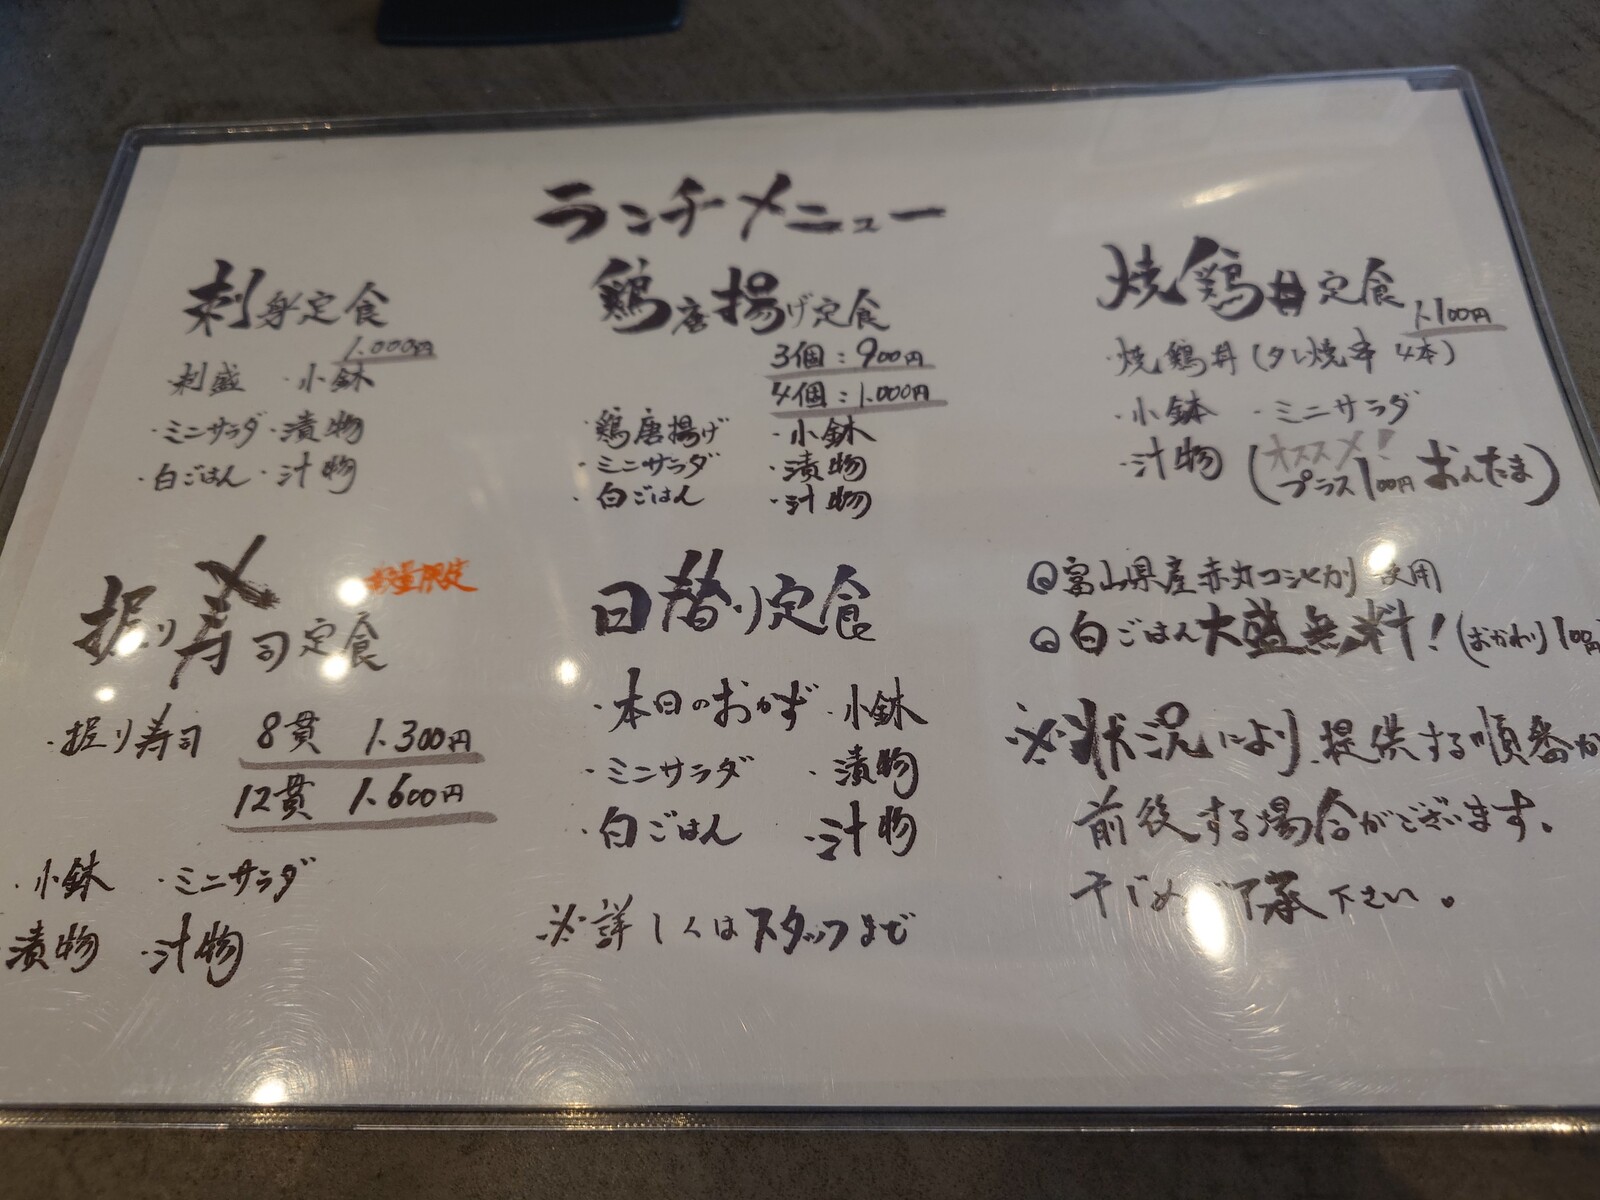 ランチメニュー
刺身定食
1.000円
・刺盛 ・小鉢
・ミニサラダ ・漬物
・白ごはん ・汁物
鶏唐揚げ定食
3個：900円
4個：1.000円
・鶏唐揚げ ・小鉢
・ミニサラダ ・漬物
・白ごはん ・汁物
焼鶏丼定食
1.100円
・焼鶏丼（タレ焼串 4本）
・小鉢 ・ミニサラダ
・汁物（オススメ！プラス100円おんたま）
握り寿司定食
数量限定
・握り寿司 8貫 1.300円
12貫 1.600円
・小鉢 ・ミニサラダ
漬物 ・汁物
日替り定食
・本日のおかず ・小鉢
・ミニサラダ ・漬物
・白ごはん ・汁物
※詳しくはスタッフまで
富山県産赤丸コシヒカリ使用
白ごはん大盛無料！（おかわり100円）
※状況により、提供する順番が
前後する場合がございます。
予めご了承下さい。